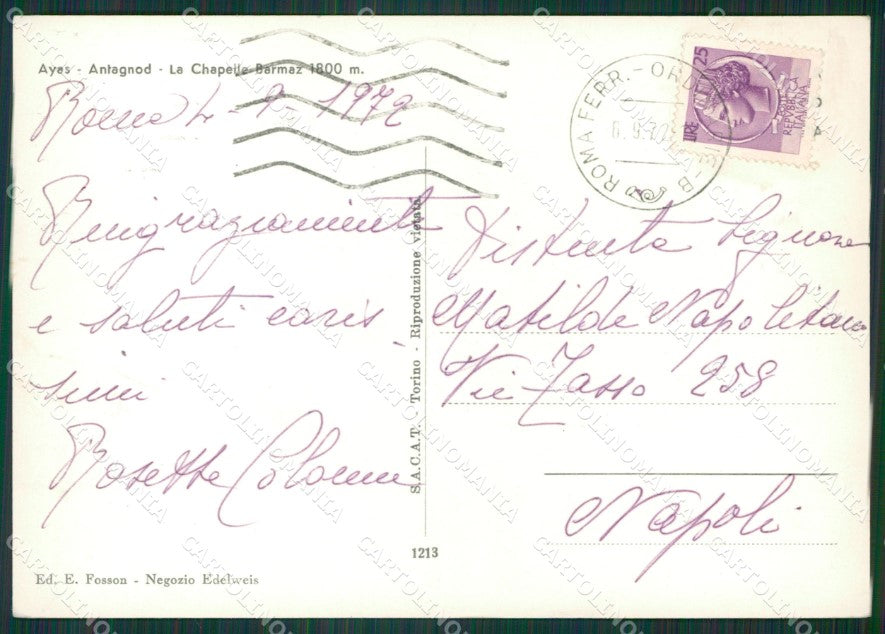 Ayas - Antagnod - La Chapelle Barmaz 1800 m.
Roma 4-9-1972
Ringraziamenti
e saluti caris
simi
Rosetta
Ed. E. Fosson - Negozio Edelweis
S.A.C.A.T. - Torino - Riproduzione vietata
1213
ROMA FERR. - ORD
LIRE 25
REPUBBLICA
ITALIANA
Distinta Signora
Matilde Napolitano
Via Tasso 258
Napoli
CARTOLINOMANIA